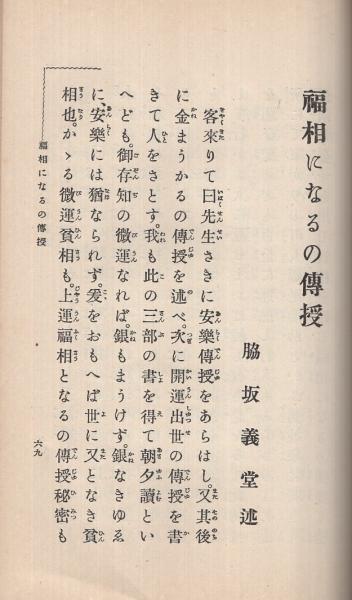 福相になるの傳授
脇坂義堂述
客來りて曰先生さきに安樂傳授をあらはし。又其後
に金まうかるの傳授を述べ。次に開運出世の傳授を書
きて人をさとす。我も此の三部の書を得て朝夕讀とい
へども。御存知の微運なれば。銀もまうけず。銀なきゆゑ
に、安樂には猶なられず。爰をおもへば世に又となき貧
相也。かゝる微運貧相も。上運福相となるの傳授秘密も
福相になるの傳授
六九